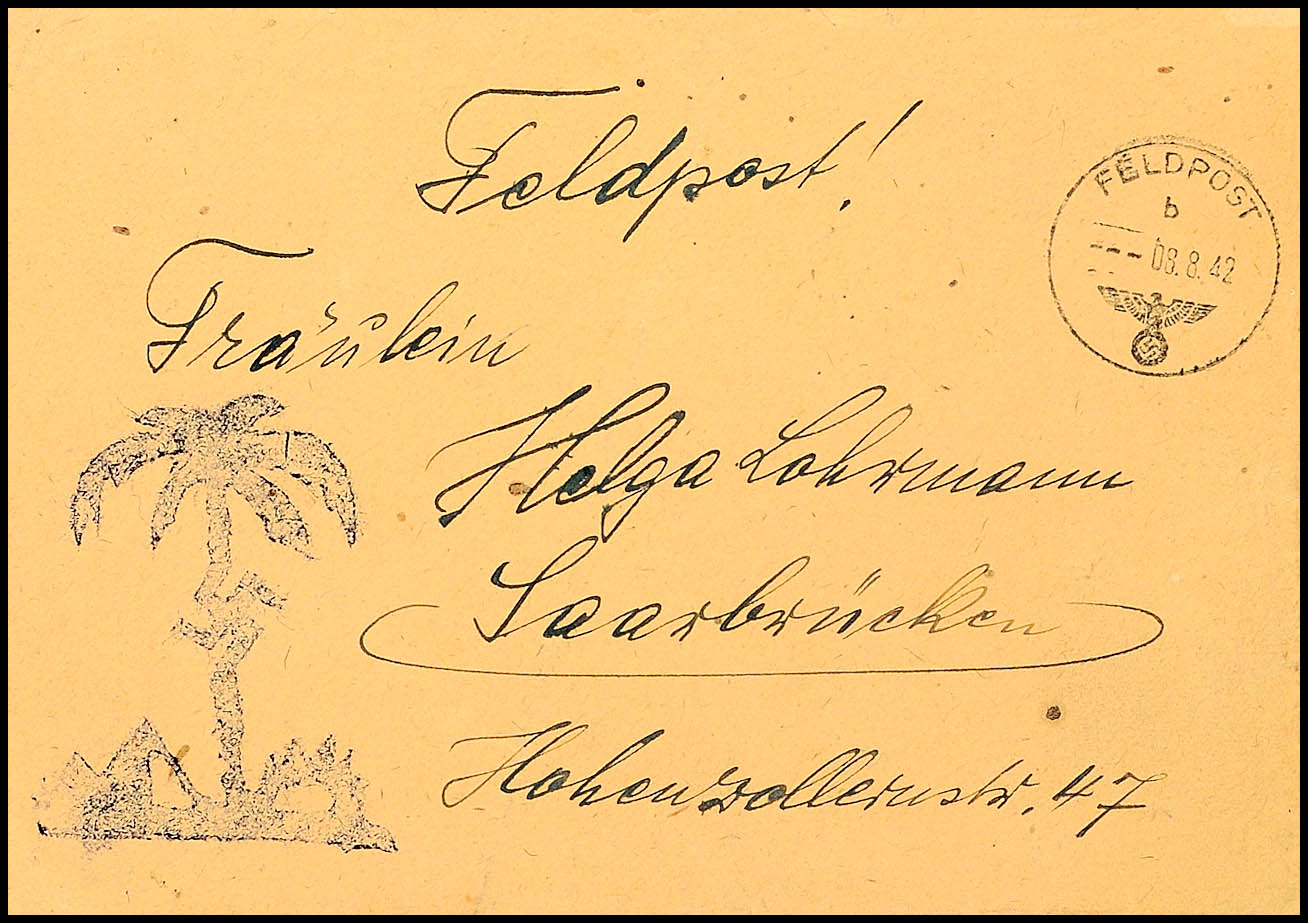 Feldpost!
FELDPOST
b
08.8.42
Fräulein
Helga Lohrmann
Saarbrücken
Hohenzollernstr. 47